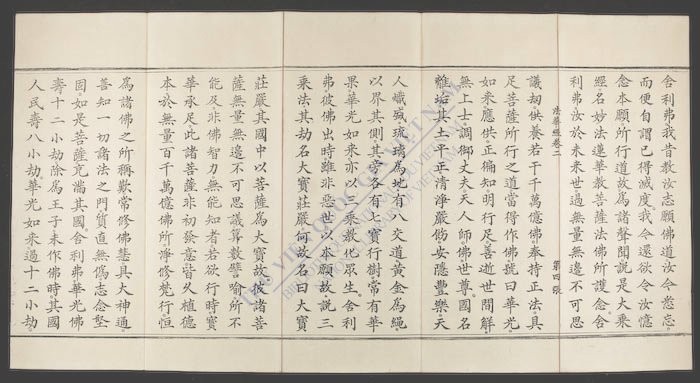 舍利弗我昔教汝志願佛道汝今悉忘
而便自謂已得滅度我今還欲令汝憶
念本願所行道故為諸聲聞說是大乘
經名妙法蓮華教菩薩法佛所護念舍
利弗汝於未來世過無量無邊不可思
法華經卷二 第四張
議劫供養若干千萬億佛奉持正法具
足菩薩所行之道當得作佛號曰華光
如來應供正徧知明行足善逝世間解
無上士調御丈夫天人師佛世尊國名
離垢其土平正清淨嚴飾安隱豐樂天
人熾盛琉璃為地有八交道黃金為繩
以界其側其傍各有七寶行樹常有華
果華光如來亦以三乘教化眾生舍利
弗彼佛出時雖非惡世以本願故說三
乘法其劫名大寶莊嚴何故名曰大寶
莊嚴其國中以菩薩為大寶故彼諸菩
薩無量無邊不可思議算數譬喻所不
能及非佛智力無能知者若欲行時寶
華承足此諸菩薩非初發意皆久植德
本於無量百千萬億佛所淨修梵行恒
為諸佛之所稱歎常修佛慧具大神通
善知一切諸法之門質直無偽志念堅
固如是菩薩充滿其國舍利弗華光佛
壽十二小劫除為王子未作佛時其國
人民壽八小劫華光如來過十二小劫